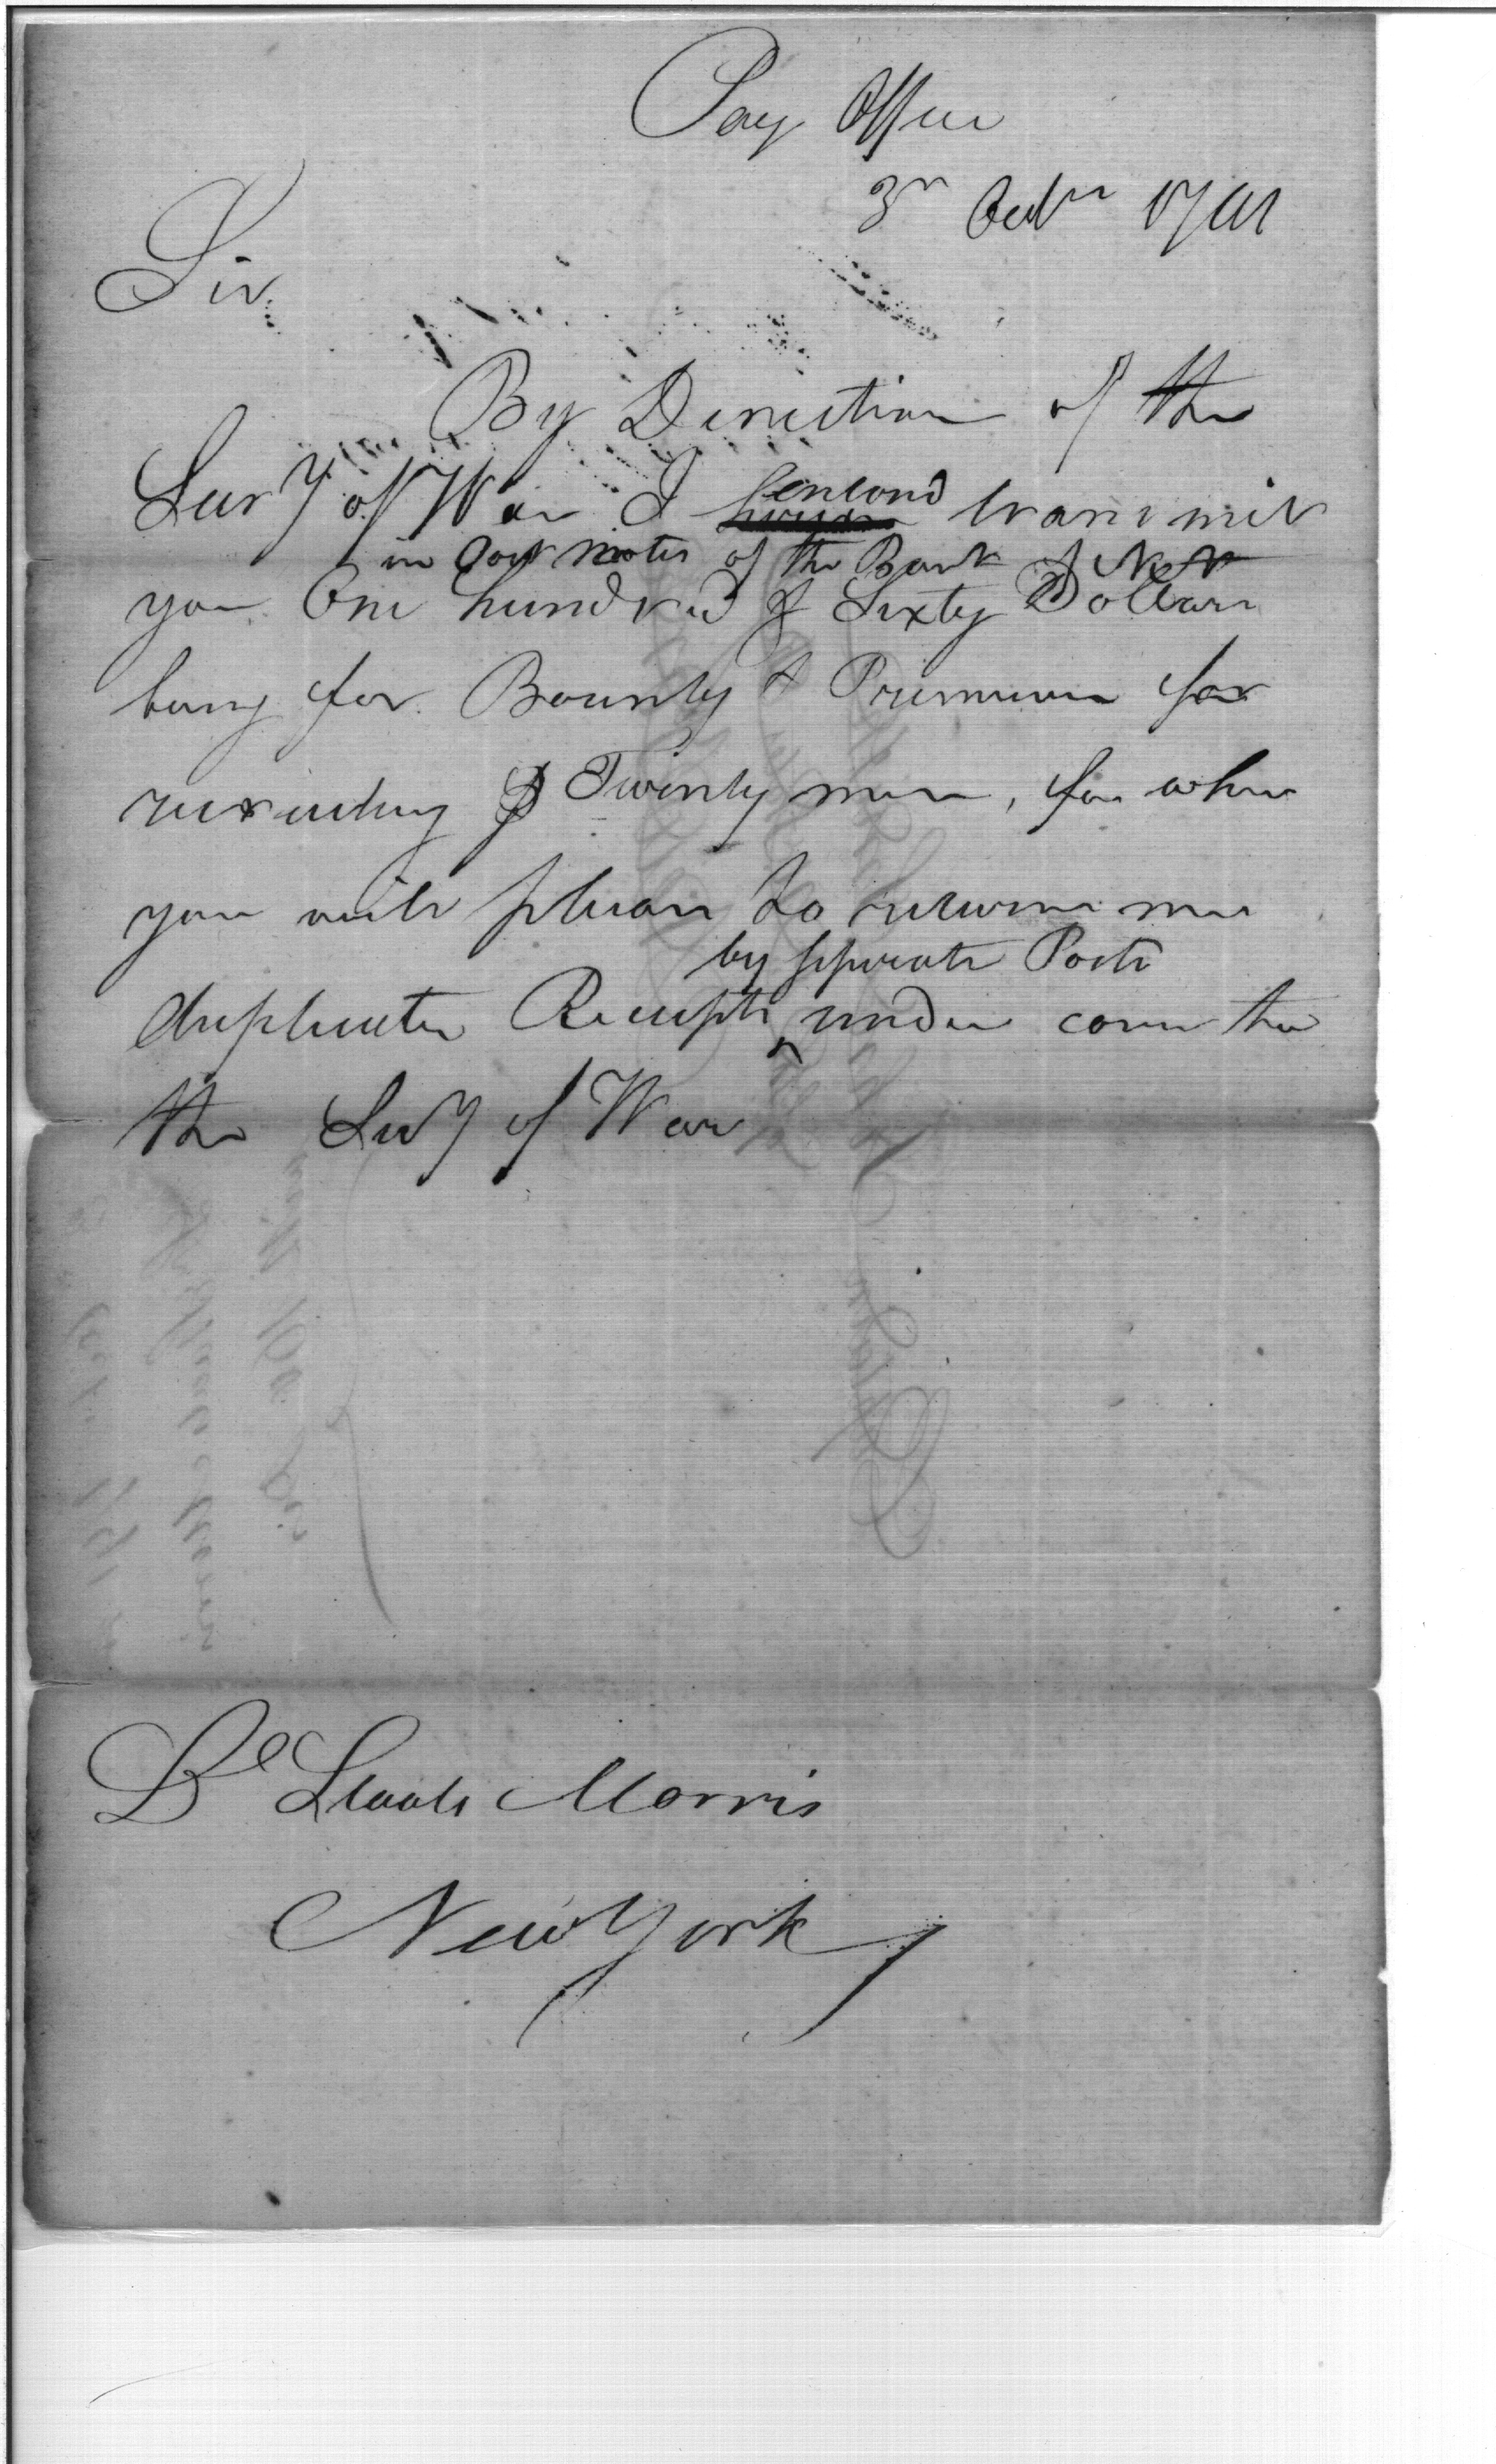 Pay Office
3rd Octr 1791
Sir
By Direction of the
Secry of War I enclosed transmit
in post notes of the Bank of N.A
you One hundred & Sixty Dollars
being for Bounty & Premium for
recruiting Twenty men, for whom
you will please to return me
by seperate Posts
duplicate Receipts under cover to
the Secy of War
Lt Staats Morris
New York